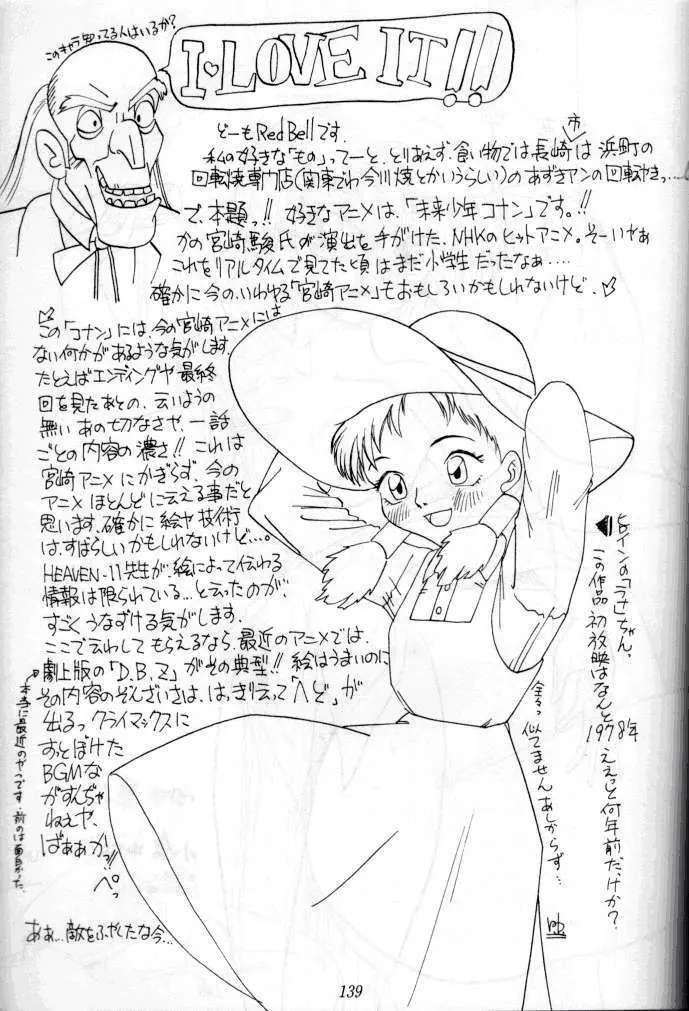 このキャラ知ってる人はいるか?
I LOVE IT!!
どーもRed Bellです。
私の好きな「もの」ってーと、とりあえず、食い物では長崎市は浜町の
回転焼専門店(関東でわ今川焼とかいうらしい)のあずきアンの回転やきっ…
で、本題っ!! 好きなアニメは、「未来少年コナン」です。!!
かの宮崎駿氏が演出を手がけた、NHKのヒットアニメ。そーいやぁ
これをリアルタイムで見てた頃はまだ小学生だったなぁ....
確かに今の、いわゆる「宮崎アニメ」もおもしろいかもしれないけど、
この「コナン」には、今の宮崎アニメには
ない何かがあるような気がします。
たとえばエンディングや最終
回を見たあとの、云いようの
無いあの切なさや、一話
ごとの内容の濃さ!! これは
宮崎アニメにかぎらず、今の
アニメほとんどに云える事だと
思います。確かに絵や技術
は、すばらしいかもしれないけど…。
HEAVEN-11先生が、絵によって伝わる
情報は限られている…と云ったのが、
すごくうなずける気がします。
ここで云わしてもらえるなら、最近のアニメでは、
劇上版の「D.B.Z」がその典型!! 絵はうまいのに
その内容のぞんざいさは、はっきり云って「へど」が
出るっ クライマックスに
すっとぼけた
BGMな
がすんぢゃ
ねえや、
ばぁぁかっ!! ペっ
本当に最近のやつです。前のは面白かった。
あぁ...敵をふやしたな今...
ヒロインの「ラナ」ちゃん。
この作品初放映はなんと1978年
ええっと何年前だっけか?
余るっ似てませんあしからず…
139